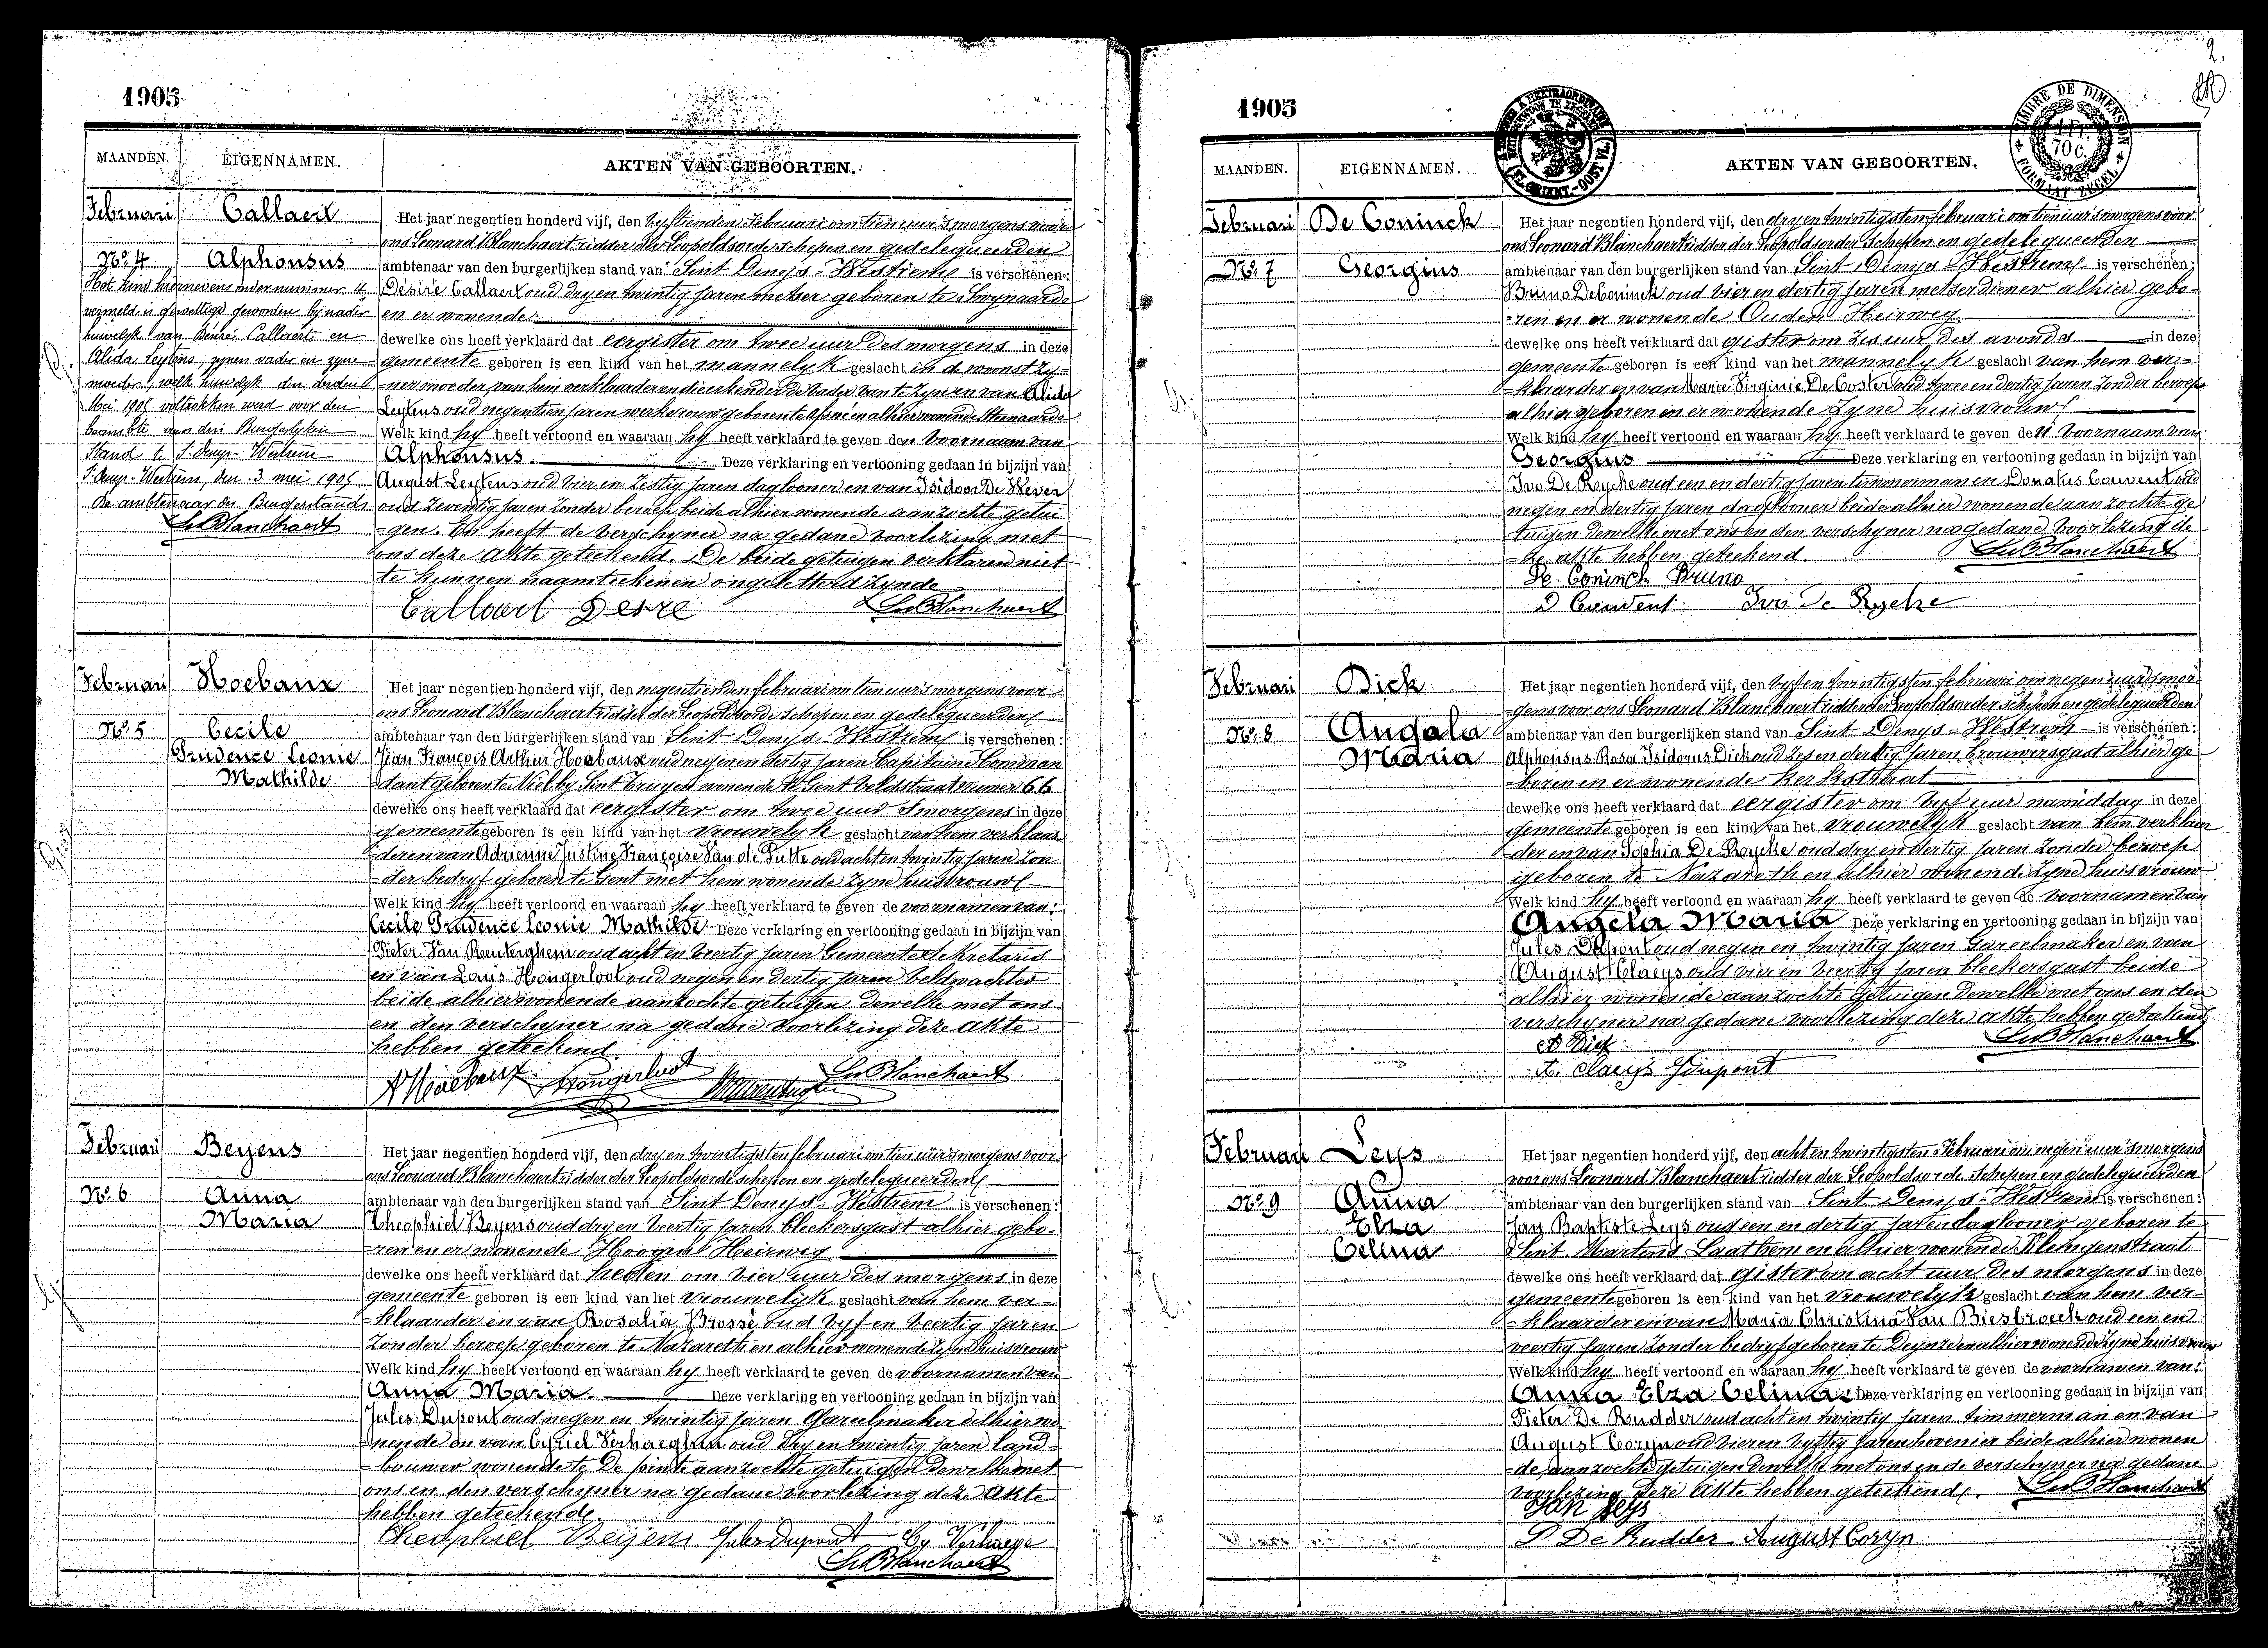 1905
MAANDEN.
EIGENNAMEN.
AKTEN VAN GEBOORTEN.
Februari
Callaert
Nº 4
Alphonsus
Het kind hiernevens onder nummer 4
vermeld is gewettigd geworden by nader
huwelyk van Désiré Callaert en
Alida Leytens, zynen vader en zyne
moeder, welk huwelyk den derden
Mei 1905 voltrokken werd voor den
beambte van den Burgerlyken
Stand te St Denys-Westrem
St Denys-Westrem, den 3 mei 1905
De ambtenaar van Burgerstand
LeBlanchaert
Het jaar negentien honderd vijf, den vyftienden Februari om tien uur 's morgens voor
ons Leonard Blanchaert ridder der Leopoldsorde schepen en gedelegueerden
ambtenaar van den burgerlijken stand van Sint Denys-Westrem is verschenen:
Désiré Callaert oud dry en twintig jaren metser geboren te Swynaarde
en er wonende
dewelke ons heeft verklaard dat eergister om twee uur des morgens in deze
gemeente geboren is een kind van het mannelyk geslacht in de woonst zy-
ner moeder van hem verklaarder en die erkende de vader van te zyn en van Alida
Leytens oud negentien jaren werkvrouw geboren te en alhier wonende Steenaarde
Welk kind hy heeft vertoond en waaraan hy heeft verklaard te geven den voornaam van
Alphonsus. Deze verklaring en vertooning gedaan in bijzijn van
August Leytens oud vier en zestig jaren daglooner en van Isidoor De Wever
oud zeventig jaren zonder beroep beide alhier wonende aanzochte getui-
gen. En heeft de verschyner na gedane voorlezing met
ons deze akte geteekend. De beide getuigen verklaren niet
te kunnen naamteekenen ongeletterd zynde
Callaert Desre LeBlanchaert
Februari
Hoebanx
Nº 5
Cecile
Prudence Leonie
Mathilde
Het jaar negentien honderd vijf, den negentienden februari om tien uur 's morgens voor
ons Leonard Blanchaert ridder der Leopoldsorde schepen en gedelegueerden
ambtenaar van den burgerlijken stand van Sint Denys-Westrem is verschenen:
Jean François Arthur Hoebanx oud negen en dertig jaren Capitaine Comman
dant geboren te Niel by Sint Truyen wonende te Gent Veldstraat numer 66
dewelke ons heeft verklaard dat eergister om twee uur 's morgens in deze
gemeente geboren is een kind van het vrouwelyk geslacht van hem verklaar
der en van Adrienne Justine Françoise Van de Putte oud acht en twintig jaren zon-
der bedryf geboren te Gent met hem wonende zyne huisvrouw
Welk kind hy heeft vertoond en waaraan hy heeft verklaard te geven de voornamen van:
Cecile Prudence Leonie Mathilde Deze verklaring en vertooning gedaan in bijzijn van
Pieter Van Renterghem oud acht en veertig jaren Gemeente Sekretaris
en van Louis Hongerloot oud negen en dertig jaren veldwachter
beide alhier wonende aanzochte getuigen dewelke met ons
en den verschyner na gedane voorlezing deze akte
hebben geteekend.
AHoebanx Hongerloot LeBlanchaert
Februari
Beyens
Nº 6
Anna
Maria
Het jaar negentien honderd vijf, den dry en twintigsten februari om tien uur 's morgens voor
ons Leonard Blanchaert ridder der Leopoldsorde schepen en gedelegueerden
ambtenaar van den burgerlijken stand van Sint Denys-Westrem is verschenen:
Theophiel Beyens oud dry en veertig jaren bleekersgast alhier gebo-
ren en er wonende Hoogen Heirweg
dewelke ons heeft verklaard dat heden om vier uur des morgens in deze
gemeente geboren is een kind van het vrouwelyk geslacht van hem ver-
klaarder en van Rosalia Brossé oud vyf en veertig jaren
zonder beroep geboren te Nazareth en alhier wonende zyne huisvrouw
Welk kind hy heeft vertoond en waaraan hy heeft verklaard te geven de voornamen van
Anna Maria. Deze verklaring en vertooning gedaan in bijzijn van
Jules Dupont oud negen en twintig jaren Gareelmaker alhier wo-
nende en van Cyriel Verhaeghe oud dry en twintig jaren land-
bouwer wonende te De pinte aanzochte getuigen dewelke met
ons en den verschyner na gedane voorlezing deze akte
hebben geteekende.
Theophiel Beijens Jules Dupont Cy Verhaege
LeBlanchaert
2.
1905
MAANDEN.
EIGENNAMEN.
AKTEN VAN GEBOORTEN.
TIMBRE DE DIMENSION
1 Fr.
70 C.
FORMAAT ZEGEL
Februari
De Coninck
Nº 7
Georgius
Het jaar negentien honderd vijf, den dry en twintigsten februari om tien uur 's morgens voor
ons Leonard Blanchaert ridder der Leopoldsorder schepen en gedelegueerden
ambtenaar van den burgerlijken stand van Sint Denys-Westrem is verschenen:
Bruno De Coninck oud vier en dertig jaren metserdiener alhier gebo-
ren en er wonende Ouden Heirweg
dewelke ons heeft verklaard dat gister om zes uur des avonds in deze
gemeente geboren is een kind van het mannelyk geslacht van hem ver-
klaarder en van Marie Virginie De Coster oud twee en dertig jaren zonder beroep
alhier geboren en er wonende zyne huisvrouw
Welk kind hy heeft vertoond en waaraan hy heeft verklaard te geven den voornaam van
Georgius Deze verklaring en vertooning gedaan in bijzijn van
Ivo De Rycke oud een en dertig jaren timmerman en Donatus Couvent oud
negen en dertig jaren daglooner beide alhier wonende aanzochte ge-
tuigen dewelke met ons en den verschyner na gedane voorlezing de-
ze akte hebben geteekend. LeBlanchaert
De Coninck Bruno
D Couvent Ivo De Rycke
Februari
Dick
Nº 8
Angala
Maria
Het jaar negentien honderd vijf, den vyf en twintigsten februari om negen uur 's mor-
gens voor ons Leonard Blanchaert ridder der Leopoldsorder schepen en gedelegueerden
ambtenaar van den burgerlijken stand van Sint Denys-Westrem is verschenen:
Alphonsus Rosa Isidorus Dick oud zes en dertig jaren brouwersgast alhier ge-
boren en er wonende Kerkstraat
dewelke ons heeft verklaard dat eergister om vyf uur namiddag in deze
gemeente geboren is een kind van het vrouwelyk geslacht van hem verklaar
der en van Sophia De Rycke oud dry en dertig jaren zonder beroep
geboren te Nazareth en alhier wonende zyne huisvrouw
Welk kind hy heeft vertoond en waaraan hy heeft verklaard te geven de voornamen van
Angela Maria Deze verklaring en vertooning gedaan in bijzijn van
Jules Dupont oud negen en twintig jaren Gareelmaker en van
August Claeys oud vier en veertig jaren bleekersgast beide
alhier wonende aanzochte getuigen dewelke met ons en den
verschyner na gedane voorlezing deze akte hebben geteekend
A Dick LeBlanchaert
A. Claeys JDupont
Februari
Leys
Nº 9
Anna
Elza
Celina
Het jaar negentien honderd vijf, den acht en twintigsten Februari om negen uur 's morgens
voor ons Leonard Blanchaert ridder der Leopoldsorde schepen en gedelegueerden
ambtenaar van den burgerlijken stand van Sint Denys-Westrem is verschenen:
Jan Baptiste Leys oud een en dertig jaren daglooner geboren te
Sint Martens Laathem en alhier wonende Klengenstraat
dewelke ons heeft verklaard dat gister om acht uur des morgens in deze
gemeente geboren is een kind van het vrouwelyk geslacht van hem ver-
klaarder en van Maria Christina Van Biesbroeck oud een en
veertig jaren zonder bedryf geboren te Deynze en alhier wonende zyne huisvrouw
Welk kind hy heeft vertoond en waaraan hy heeft verklaard te geven de voornamen van:
Anna Elza Celina Deze verklaring en vertooning gedaan in bijzijn van
Pieter De Rudder oud acht en twintig jaren timmerman en van
August Coryn oud vier en vyftig jaren hovenier beide alhier wonen
de aanzochte getuigen dewelke met ons en de verschyner na gedane
voorlezing deze akte hebben geteekend. LeBlanchaert
Jan Leys
P De Rudder August Coryn